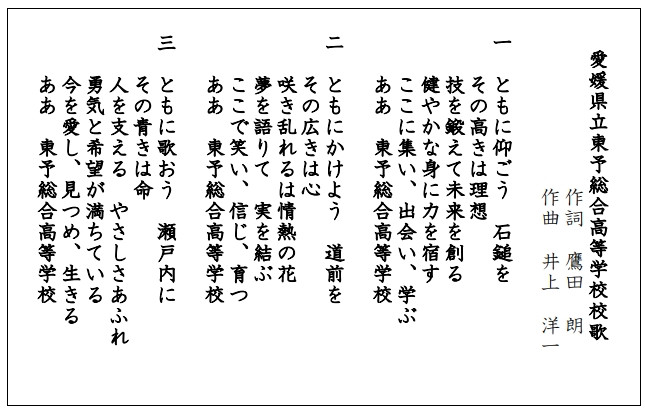 愛媛県立東予総合高等学校校歌
作詞　鷹田　朗
作曲　井上　洋一
一　ともに仰ごう　石鎚を
その高きは理想
技を鍛えて未来を創る
健やかな身に力を宿す
ここに集い、出会い、学ぶ
ああ　東予総合高等学校
二　ともにかけよう　道前を
その広きは心
咲き乱れるは情熱の花
夢を語りて　実を結ぶ
ここで笑い、信じ、育つ
ああ　東予総合高等学校
三　ともに歌おう　瀬戸内に
その青きは命
人を支える　やさしさあふれ
勇気と希望が満ちている
今を愛し、見つめ、生きる
ああ　東予総合高等学校